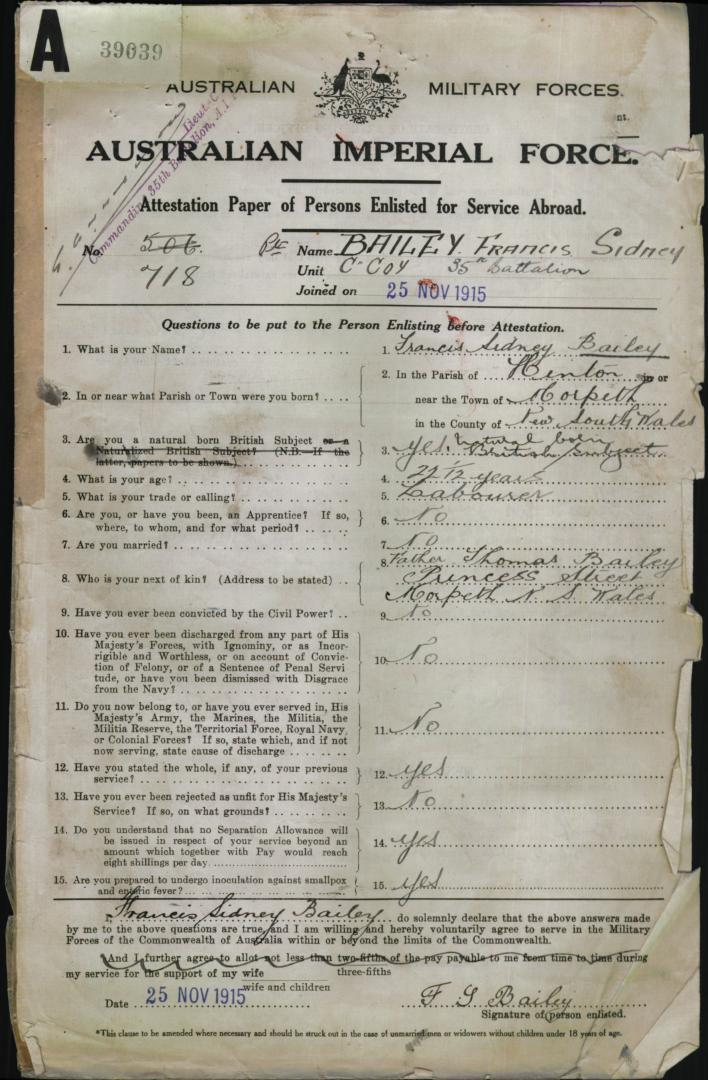 A
39039
AUSTRALIAN MILITARY FORCES.
nt.
Commanding 35th Battalion, A.I.F.
Lieut.
AUSTRALIAN IMPERIAL FORCE.
Attestation Paper of Persons Enlisted for Service Abroad.
No. 506. Pte Name BAILEY Francis Sidney
718 Unit C Coy 35th Battalion
Joined on 25 NOV 1915
Questions to be put to the Person Enlisting before Attestation.
1. What is your Name? 1. Francis Sidney Bailey
2. In or near what Parish or Town were you born? 2. In the Parish of Hinton in or
near the Town of Morpeth
in the County of New South Wales
3. Are you a natural born British Subject or a
Naturalized British Subject? (N.B.—If the
latter, papers to be shown.) 3. yes natural born
British subject
4. What is your age? 4. 27 1/12 years
5. What is your trade or calling? 5. Labourer
6. Are you, or have you been, an Apprentice? If so,
where, to whom, and for what period? 6. No
7. Are you married? 7. No
8. Who is your next of kin? (Address to be stated) 8. Father Thomas Bailey
Princess Street
Morpeth N. S. Wales
9. Have you ever been convicted by the Civil Power? 9. No
10. Have you ever been discharged from any part of His
Majesty's Forces, with Ignominy, or as Incor-
rigible and Worthless, or on account of Convic-
tion of Felony, or of a Sentence of Penal Servi
tude, or have you been dismissed with Disgrace
from the Navy? 10. No
11. Do you now belong to, or have you ever served in, His
Majesty's Army, the Marines, the Militia, the
Militia Reserve, the Territorial Force, Royal Navy
or Colonial Forces? If so, state which, and if not
now serving, state cause of discharge 11. No
12. Have you stated the whole, if any, of your previous
service? 12. yes
13. Have you ever been rejected as unfit for His Majesty's
Service? If so, on what grounds? 13. No
14. Do you understand that no Separation Allowance will
be issued in respect of your service beyond an
amount which together with Pay would reach
eight shillings per day 14. yes
15. Are you prepared to undergo inoculation against smallpox
and enteric fever? 15. yes
Francis Sidney Bailey do solemnly declare that the above answers made
by me to the above questions are true, and I am willing and hereby voluntarily agree to serve in the Military
Forces of the Commonwealth of Australia within or beyond the limits of the Commonwealth.
And I further agree to allot not less than two-fifths of the pay payable to me from time to time during
three-fifths
my service for the support of my wife
wife and children
Date 25 NOV 1915 F. S. Bailey
Signature of person enlisted.
*This clause to be amended where necessary and should be struck out in the case of unmarried men or widowers without children under 18 years of age.